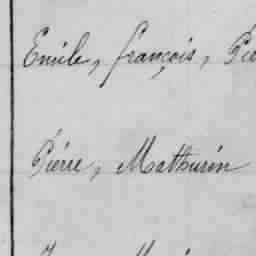 Emile, françois, Pie
Pierre, Mathurin